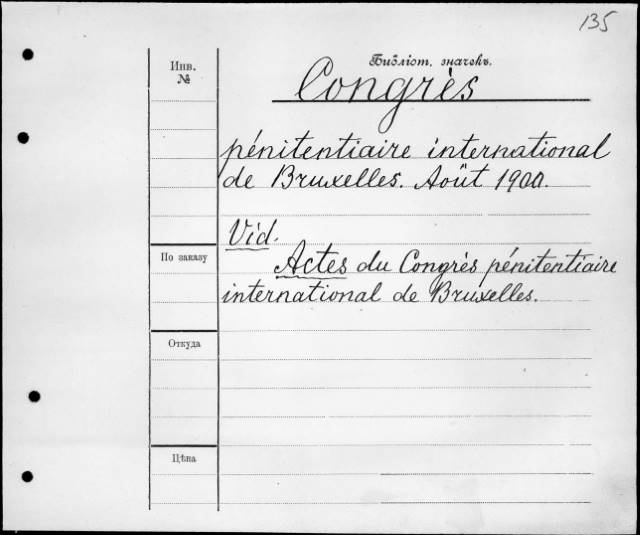 135
Инв.
№
Библіот. значекъ.
Congrès
pénitentiaire international
de Bruxelles. Août 1900.
Vid.
По заказу
Actes du Congrès pénitentiaire
international de Bruxelles.
Откуда
Цѣна